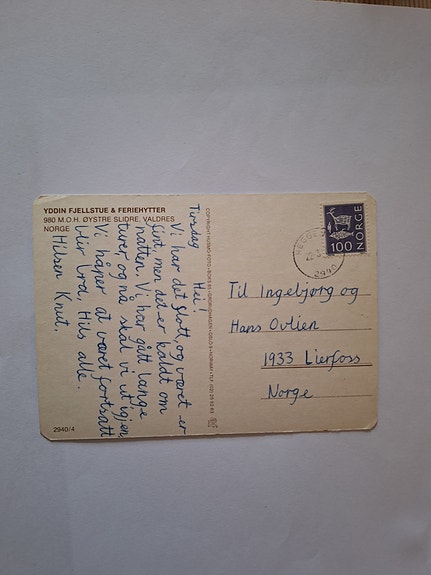 YDDIN FJELLSTUE & FERIEHYTTER
980 M.O.H. ØYSTRE SLIDRE, VALDRES
NORGE
Tirsdag
Hei!
Vi har det flott, og været er
fint men det er kaldt om
natten. Vi har gått lange
turer og nå skal vi ut igjen.
Vi håper at været fortsatt
blir bra. Hils alle.
Hilsen Knut.
2940/4
NORGE
100
2940
Til Ingebjørg og
Hans Ovlien
1933 Lierfoss
Norge